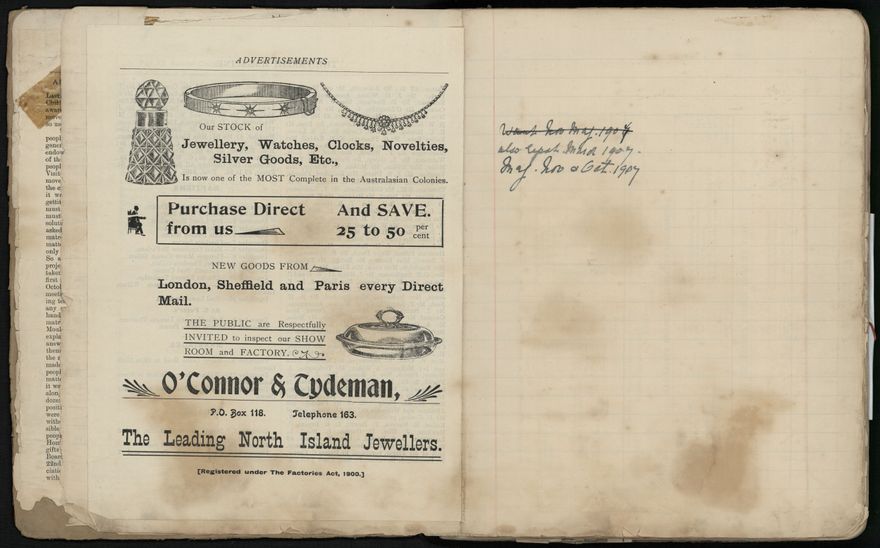 ADVERTISEMENTS
Our STOCK of
Jewellery, Watches, Clocks, Novelties,
Silver Goods, Etc.,
Is now one of the MOST Complete in the Australasian Colonies.
Purchase Direct
from us
And SAVE.
25 to 50 per cent
NEW GOODS FROM
London, Sheffield and Paris every Direct
Mail.
THE PUBLIC are Respectfully
INVITED to inspect our SHOW
ROOM and FACTORY.
O'Connor & Tydeman,
P.O. Box 118. Telephone 163.
The Leading North Island Jewellers.
[Registered under The Factories Act, 1900.]
Want Nov May. 1907
also Sept. March 1907.
May. Nov & Oct. 1907